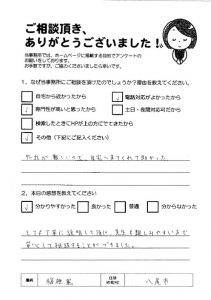 ご相談頂き、
ありがとうございました！
当事務所では、ホームページに掲載する目的でアンケートの
お願いをしております。
お手数ですが、ご協力くださいましたら幸いです。
1. なぜ当事務所にご相談を頂けたのでしょうか？理由を教えてください。
自宅から近かったから
電話対応がよかったから
専門性が高いと思ったから
土日・夜間対応可だから
検索したときにHPが上の方にでてきたから
その他（下記にご記入ください）
2. 本日の感想を教えてください
分かりやすかった
良かった
普通
分からなかった
とても丁寧に説明して頂け、先生も親しみやすい方で
安心して相談することができました。
八尾市